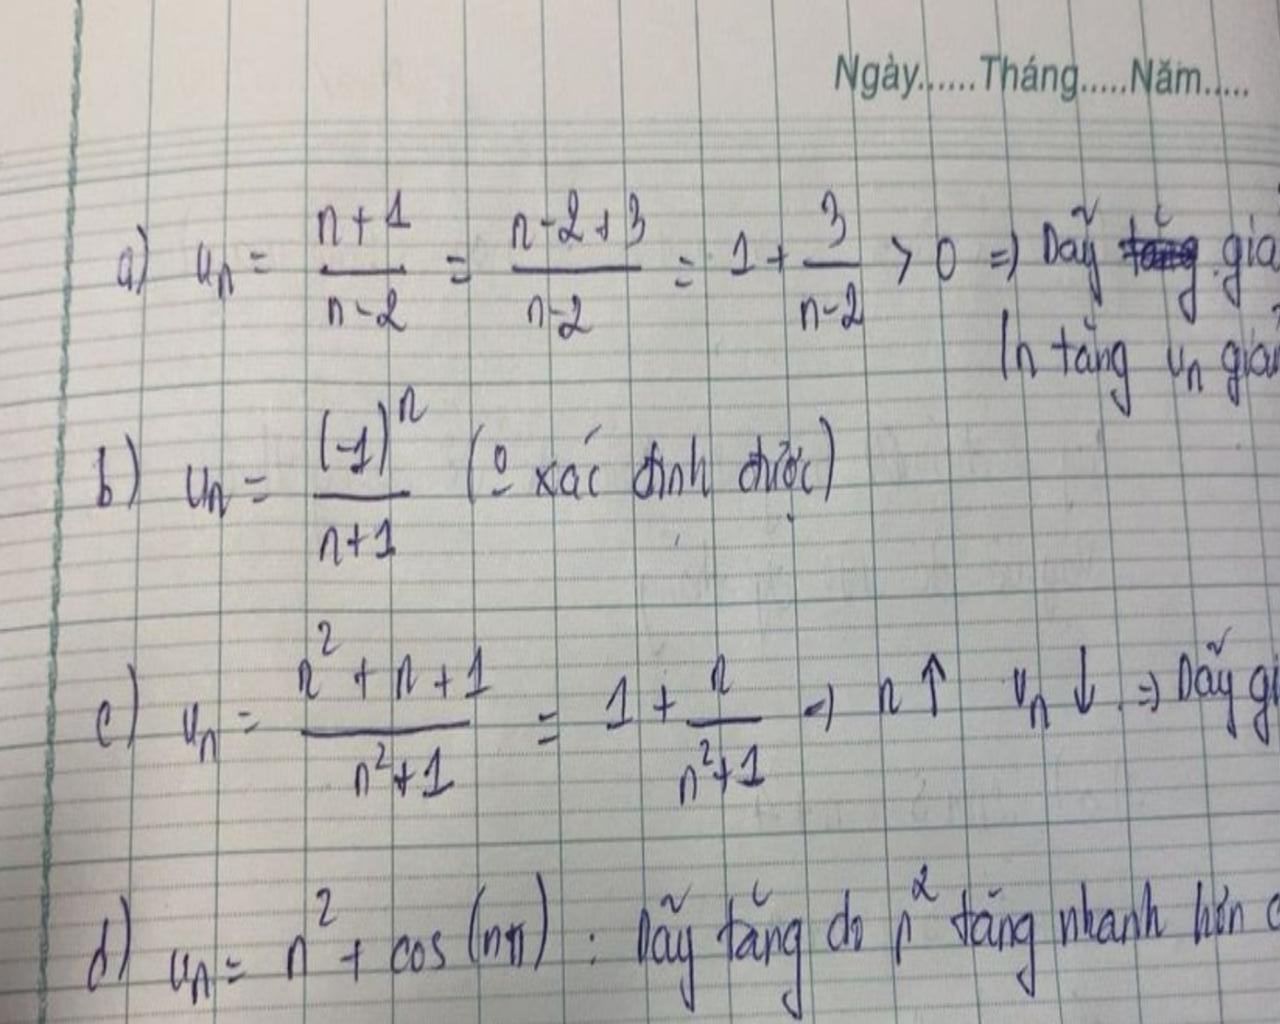 Ngày......Tháng.....Năm.....
a) uₙ = (n+1)/(n-2) = (n-2+3)/(n-2) = 1 + 3/(n-2) > 0 => Dãy
(n tăng uₙ
b) uₙ = (-1)ⁿ/(n+1) (º xác định được)
c) uₙ = (n²+n+1)/(n²+1) = 1 + n/(n²+1) => n↑ uₙ↓ => Dãy
d) uₙ = n² + cos(nπ) : Dãy tăng do n² tăng nhanh hơn